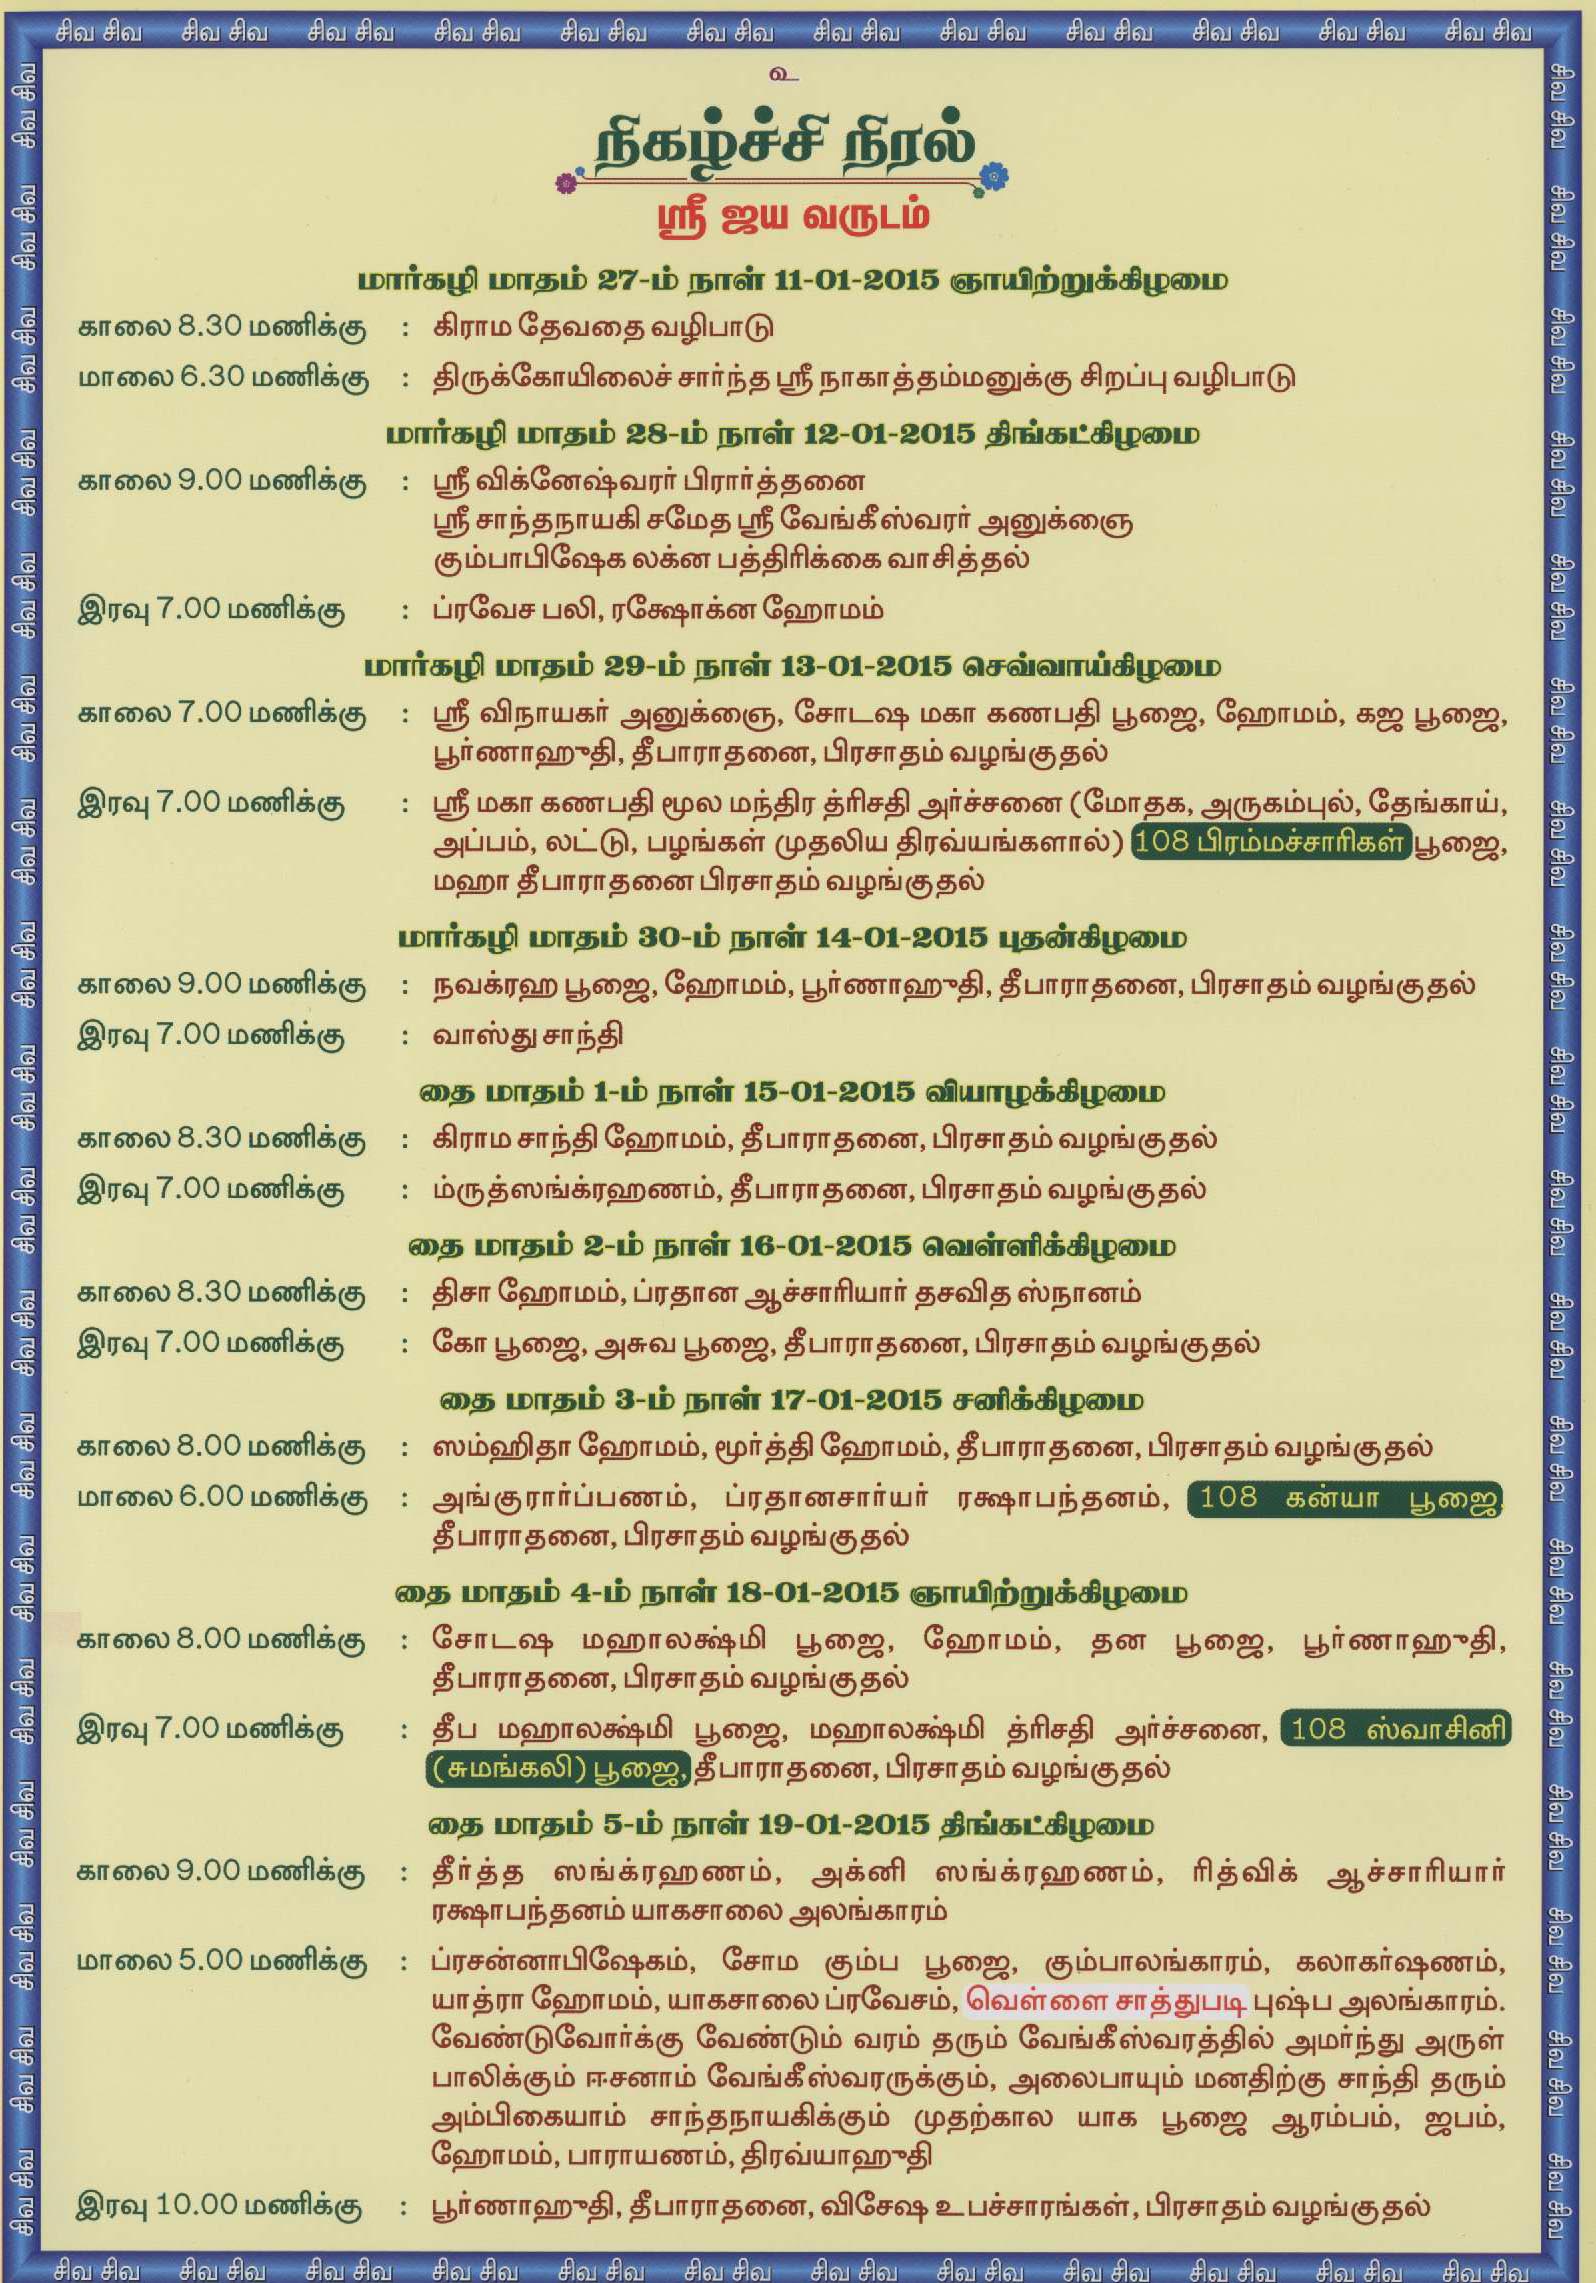 சிவ சிவ சிவ சிவ சிவ சிவ சிவ சிவ சிவ சிவ சிவ சிவ சிவ சிவ சிவ சிவ சிவ சிவ சிவ சிவ சிவ சிவ சிவ சிவ
உ
நிகழ்ச்சி நிரல்
ஸ்ரீ ஜய வருடம்
மார்கழி மாதம் 27-ம் நாள் 11-01-2015 ஞாயிற்றுக்கிழமை
காலை 8.30 மணிக்கு : கிராம தேவதை வழிபாடு
மாலை 6.30 மணிக்கு : திருக்கோயிலைச் சார்ந்த ஸ்ரீ நாகாத்தம்மனுக்கு சிறப்பு வழிபாடு
மார்கழி மாதம் 28-ம் நாள் 12-01-2015 திங்கட்கிழமை
காலை 9.00 மணிக்கு : ஸ்ரீ விக்னேஷ்வரர் பிரார்த்தனை
ஸ்ரீ சாந்தநாயகி சமேத ஸ்ரீ வேங்கீஸ்வரர் அனுக்ஞை
கும்பாபிஷேக லக்ன பத்திரிக்கை வாசித்தல்
இரவு 7.00 மணிக்கு : ப்ரவேச பலி, ரக்ஷோக்ன ஹோமம்
மார்கழி மாதம் 29-ம் நாள் 13-01-2015 செவ்வாய்கிழமை
காலை 7.00 மணிக்கு : ஸ்ரீ விநாயகர் அனுக்ஞை, சோடஷ மகா கணபதி பூஜை, ஹோமம், கஜ பூஜை,
பூர்ணாஹுதி, தீபாராதனை, பிரசாதம் வழங்குதல்
இரவு 7.00 மணிக்கு : ஸ்ரீ மகா கணபதி மூல மந்திர த்ரிசதி அர்ச்சனை (மோதக, அருகம்புல், தேங்காய்,
அப்பம், லட்டு, பழங்கள் முதலிய திரவ்யங்களால்) 108 பிரம்மச்சாரிகள் பூஜை,
மஹா தீபாராதனை பிரசாதம் வழங்குதல்
மார்கழி மாதம் 30-ம் நாள் 14-01-2015 புதன்கிழமை
காலை 9.00 மணிக்கு : நவக்ரஹ பூஜை, ஹோமம், பூர்ணாஹுதி, தீபாராதனை, பிரசாதம் வழங்குதல்
இரவு 7.00 மணிக்கு : வாஸ்து சாந்தி
தை மாதம் 1-ம் நாள் 15-01-2015 வியாழக்கிழமை
காலை 8.30 மணிக்கு : கிராம சாந்தி ஹோமம், தீபாராதனை, பிரசாதம் வழங்குதல்
இரவு 7.00 மணிக்கு : ம்ருத்ஸங்க்ரஹணம், தீபாராதனை, பிரசாதம் வழங்குதல்
தை மாதம் 2-ம் நாள் 16-01-2015 வெள்ளிக்கிழமை
காலை 8.30 மணிக்கு : திசா ஹோமம், ப்ரதான ஆச்சாரியார் தசவித ஸ்நானம்
இரவு 7.00 மணிக்கு : கோ பூஜை, அசுவ பூஜை, தீபாராதனை, பிரசாதம் வழங்குதல்
தை மாதம் 3-ம் நாள் 17-01-2015 சனிக்கிழமை
காலை 8.00 மணிக்கு : ஸம்ஹிதா ஹோமம், மூர்த்தி ஹோமம், தீபாராதனை, பிரசாதம் வழங்குதல்
மாலை 6.00 மணிக்கு : அங்குரார்ப்பணம், ப்ரதானசார்யர் ரக்ஷாபந்தனம், 108 கன்யா பூஜை,
தீபாராதனை, பிரசாதம் வழங்குதல்
தை மாதம் 4-ம் நாள் 18-01-2015 ஞாயிற்றுக்கிழமை
காலை 8.00 மணிக்கு : சோடஷ மஹாலக்ஷ்மி பூஜை, ஹோமம், தன பூஜை, பூர்ணாஹுதி,
தீபாராதனை, பிரசாதம் வழங்குதல்
இரவு 7.00 மணிக்கு : தீப மஹாலக்ஷ்மி பூஜை, மஹாலக்ஷ்மி த்ரிசதி அர்ச்சனை, 108 ஸ்வாசினி
(சுமங்கலி) பூஜை, தீபாராதனை, பிரசாதம் வழங்குதல்
தை மாதம் 5-ம் நாள் 19-01-2015 திங்கட்கிழமை
காலை 9.00 மணிக்கு : தீர்த்த ஸங்க்ரஹணம், அக்னி ஸங்க்ரஹணம், ரித்விக் ஆச்சாரியார்
ரக்ஷாபந்தனம் யாகசாலை அலங்காரம்
மாலை 5.00 மணிக்கு : ப்ரசன்னாபிஷேகம், சோம கும்ப பூஜை, கும்பாலங்காரம், கலாகர்ஷணம்,
யாத்ரா ஹோமம், யாகசாலை ப்ரவேசம், வெள்ளை சாத்துபடி புஷ்ப அலங்காரம்.
வேண்டுவோர்க்கு வேண்டும் வரம் தரும் வேங்கீஸ்வரத்தில் அமர்ந்து அருள்
பாலிக்கும் ஈசனாம் வேங்கீஸ்வரருக்கும், அலைபாயும் மனதிற்கு சாந்தி தரும்
அம்பிகையாம் சாந்தநாயகிக்கும் முதற்கால யாக பூஜை ஆரம்பம், ஜபம்,
ஹோமம், பாராயணம், திரவ்யாஹுதி
இரவு 10.00 மணிக்கு : பூர்ணாஹுதி, தீபாராதனை, விசேஷ உபச்சாரங்கள், பிரசாதம் வழங்குதல்
சிவ சிவ சிவ சிவ சிவ சிவ சிவ சிவ சிவ சிவ சிவ சிவ சிவ சிவ சிவ சிவ சிவ சிவ சிவ சிவ சிவ சிவ சிவ சிவ